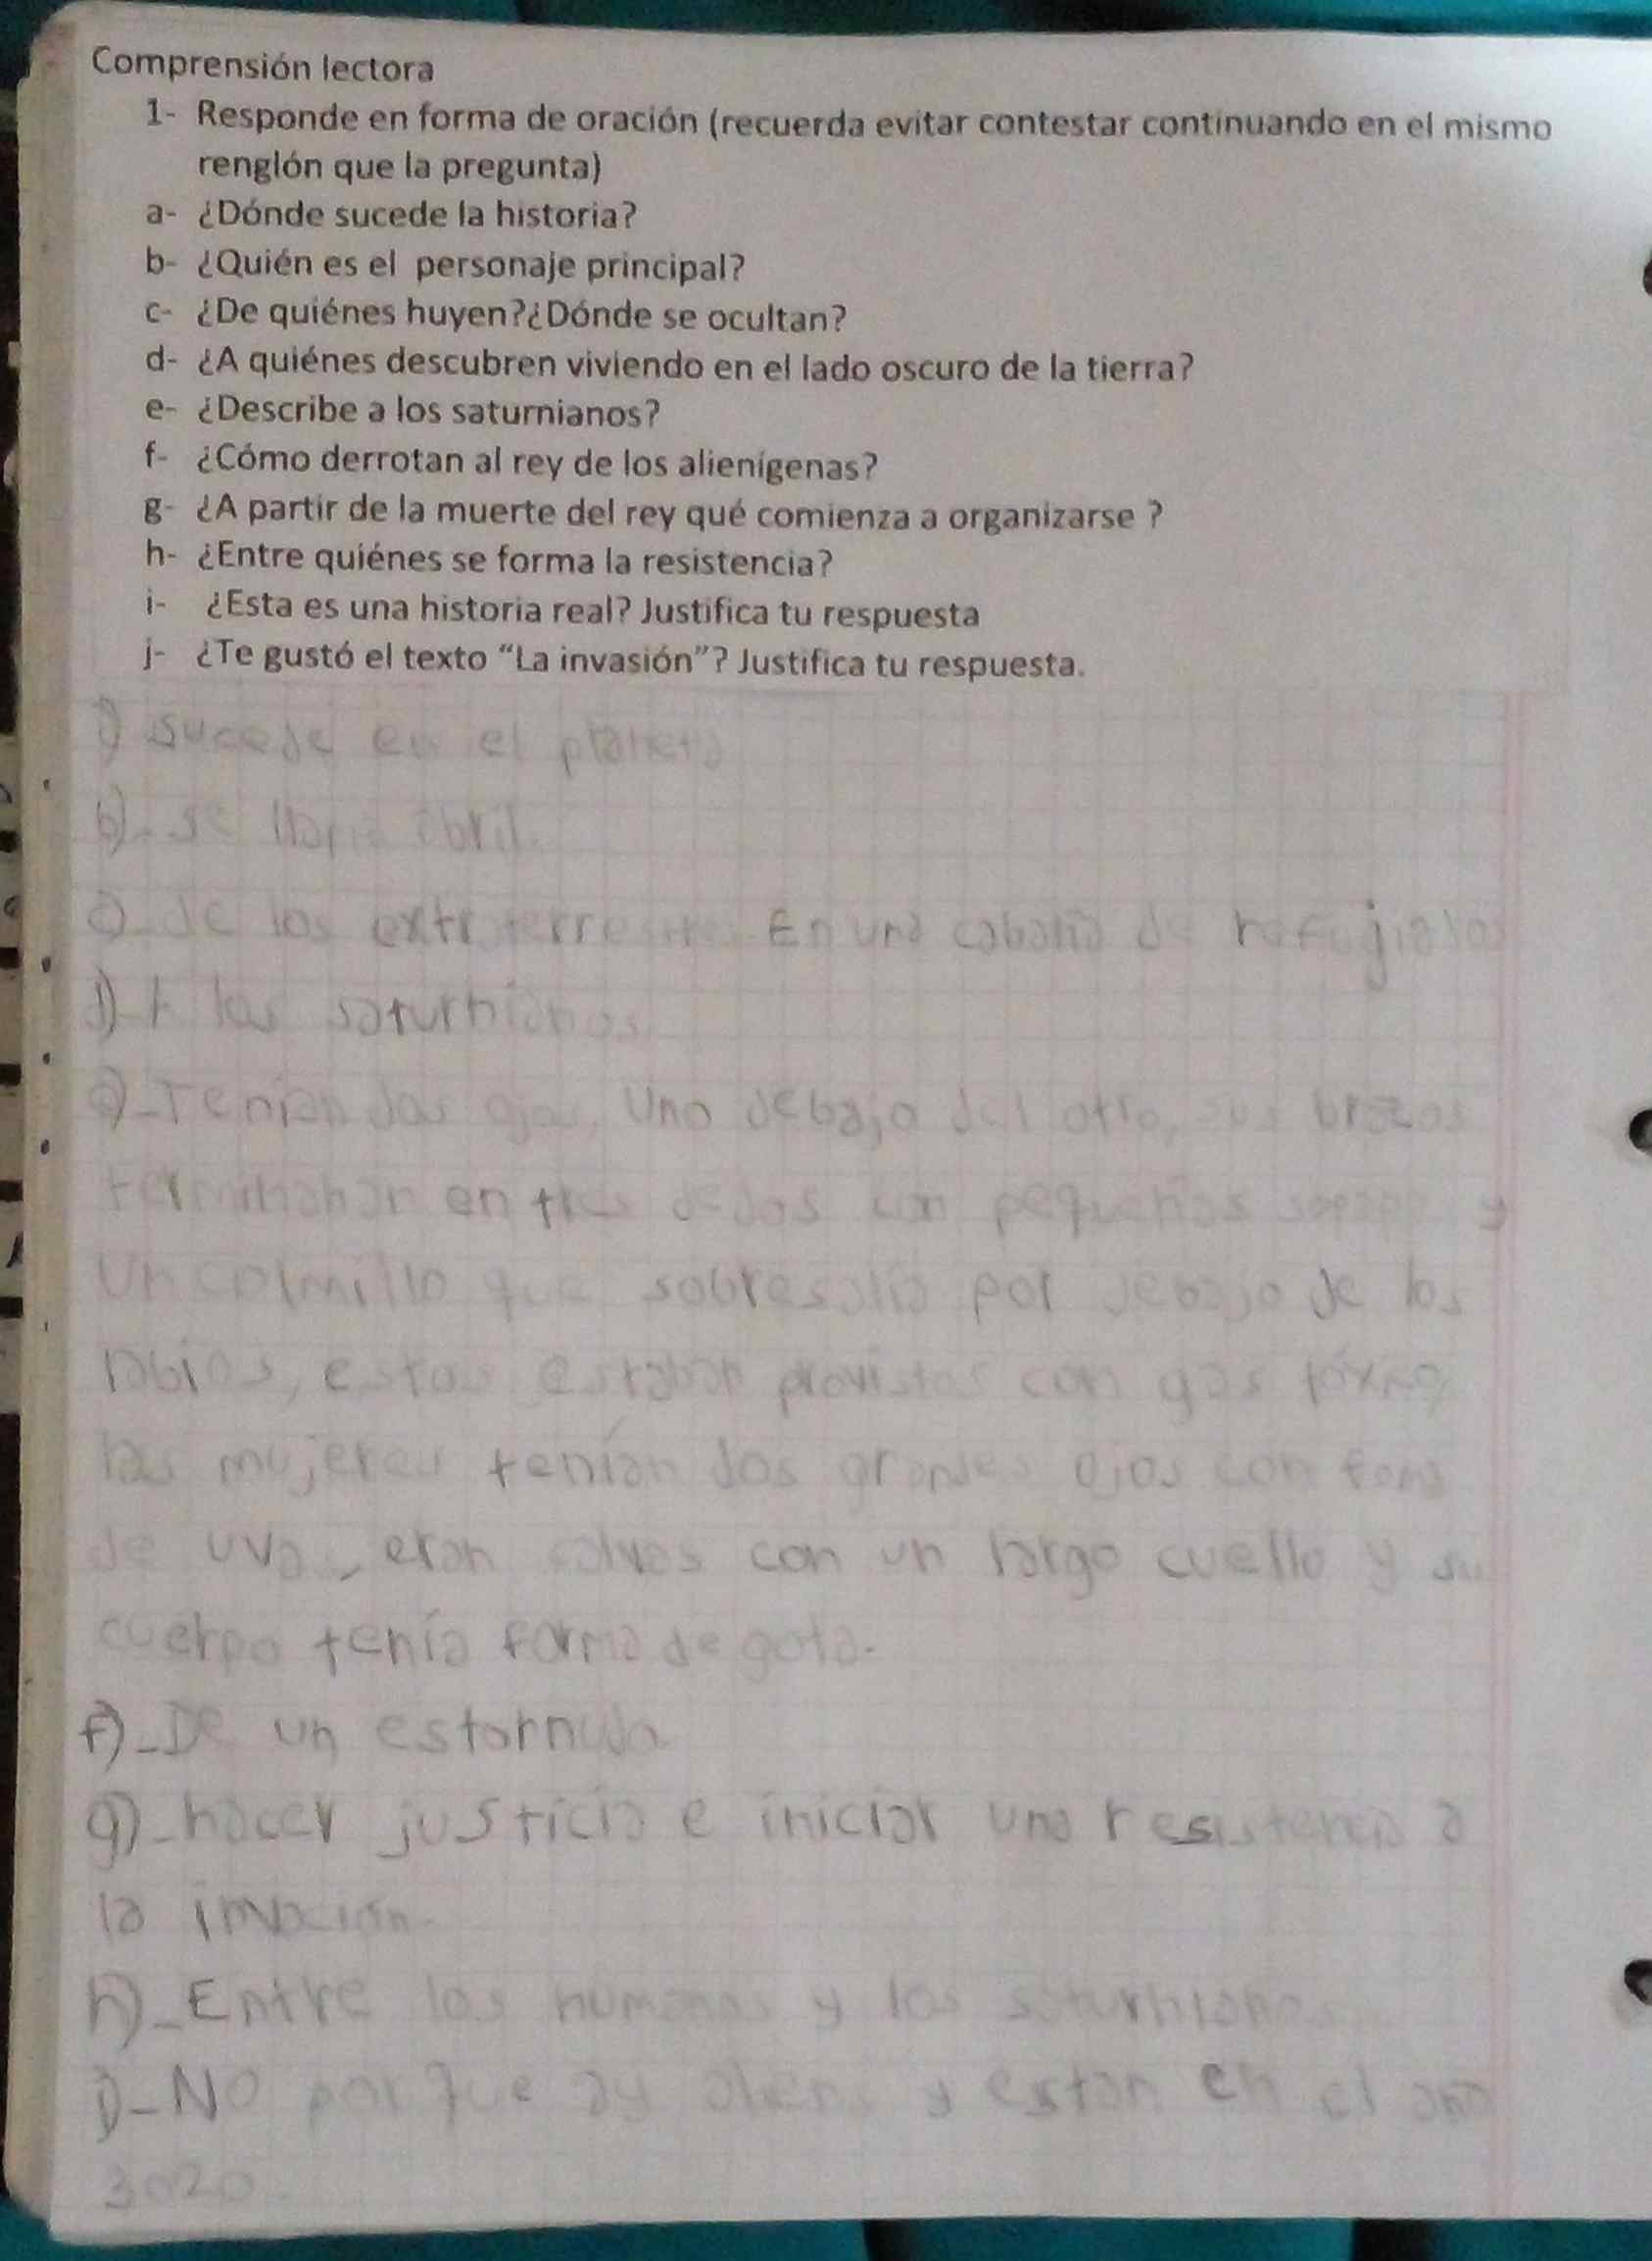 Comprensión lectora
1- Responde en forma de oración (recuerda evitar contestar continuando en el mismo
renglón que la pregunta)
a- ¿Dónde sucede la historia?
b- ¿Quién es el personaje principal?
c- ¿De quiénes huyen?¿Dónde se ocultan?
d- ¿A quiénes descubren viviendo en el lado oscuro de la tierra?
e- ¿Describe a los saturnianos?
f- ¿Cómo derrotan al rey de los alienígenas?
g- ¿A partir de la muerte del rey qué comienza a organizarse ?
h- ¿Entre quiénes se forma la resistencia?
i- ¿Esta es una historia real? Justifica tu respuesta
j- ¿Te gustó el texto “La invasión”? Justifica tu respuesta.
sucede en el planeta
b)-se
de los extraterrestres En una cabaña de refugiados
d)-A los saturnianos
e)-Tenían dos ojos, uno debajo del otro, sus brazos
terminaban en tres dedos con pequeñas y
un colmillo que sobresalia por debajo de los
labios, estos estaban provistos con gas
las mujeres tenían dos grandes ojos con
de uva, eran calvas con un largo cuello y su
cuerpo tenía forma de gota.
f)-De un estornudo
g)-hacer justicia e iniciar una resistencia a
la
h)-Entre los humanos y los saturnianos
i)-No porque ay aliens y estan en el año
3020.